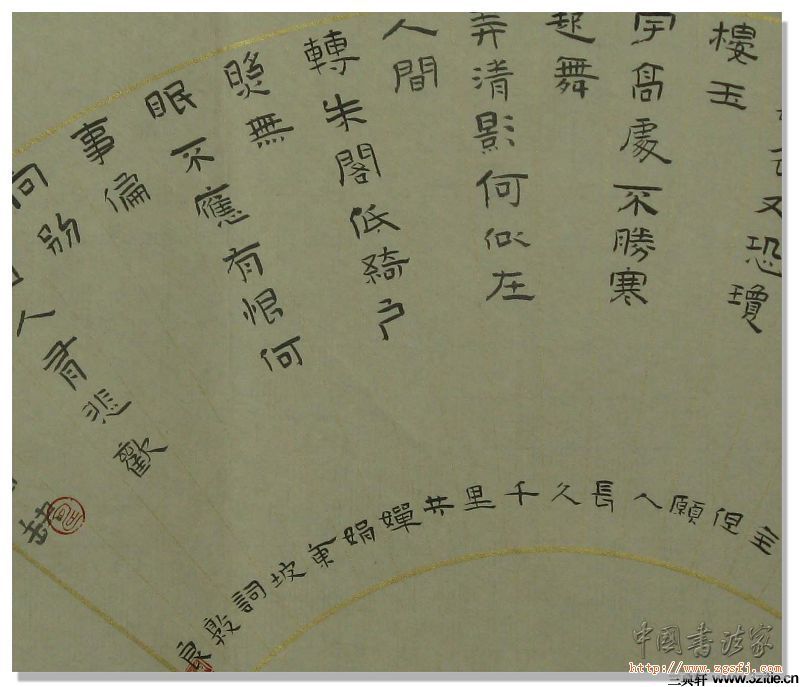 去又恐瓊
樓玉
宇高處不勝寒
起舞
弄清影何似在
人間
轉朱閣低綺戶
照無
眠不應有恨何
事偏
向別
人有悲歡
全但願人長久千里共嬋娟東坡詞
中國書法家
http://www.zgsfj.com